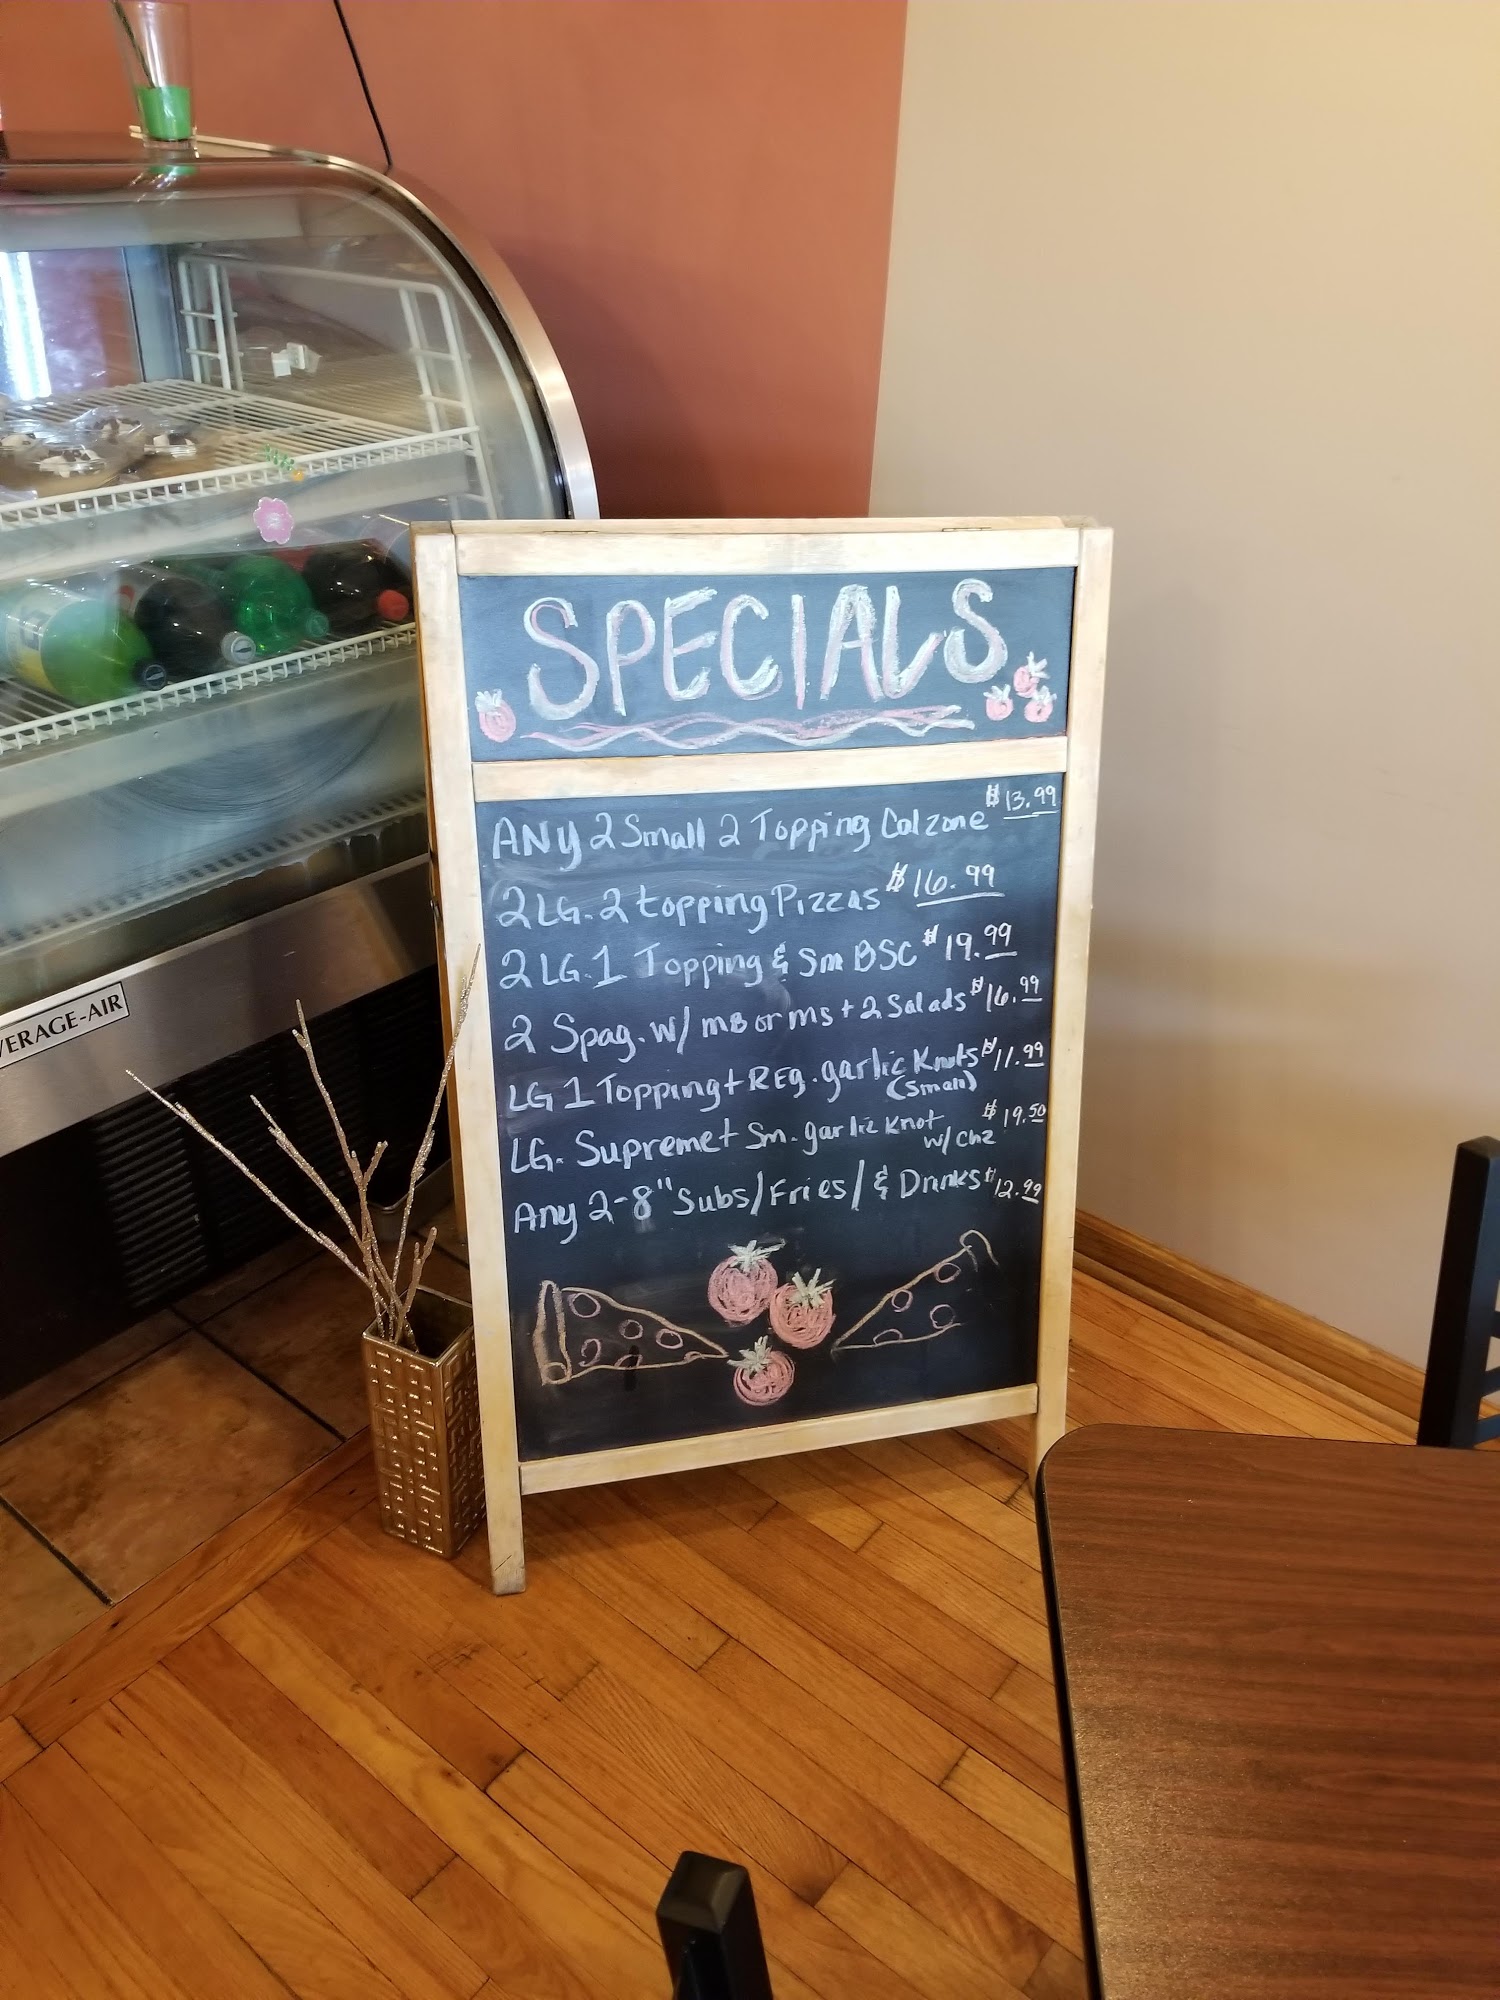 SPECIALS
ANY 2 Small 2 Topping Calzone $13.99
2 LG. 2 topping Pizzas $16.99
2 LG. 1 Topping & Sm BSC $19.99
2 Spag. w/ mB or ms + 2 Salads $16.99
LG 1 Topping + REg. garlic Knots $11.99
(Small)
LG. Supreme + Sm. garlic Knot $19.50
w/ chz
Any 2-8" Subs/Fries/& Drinks $12.99
VERAGE-AIR